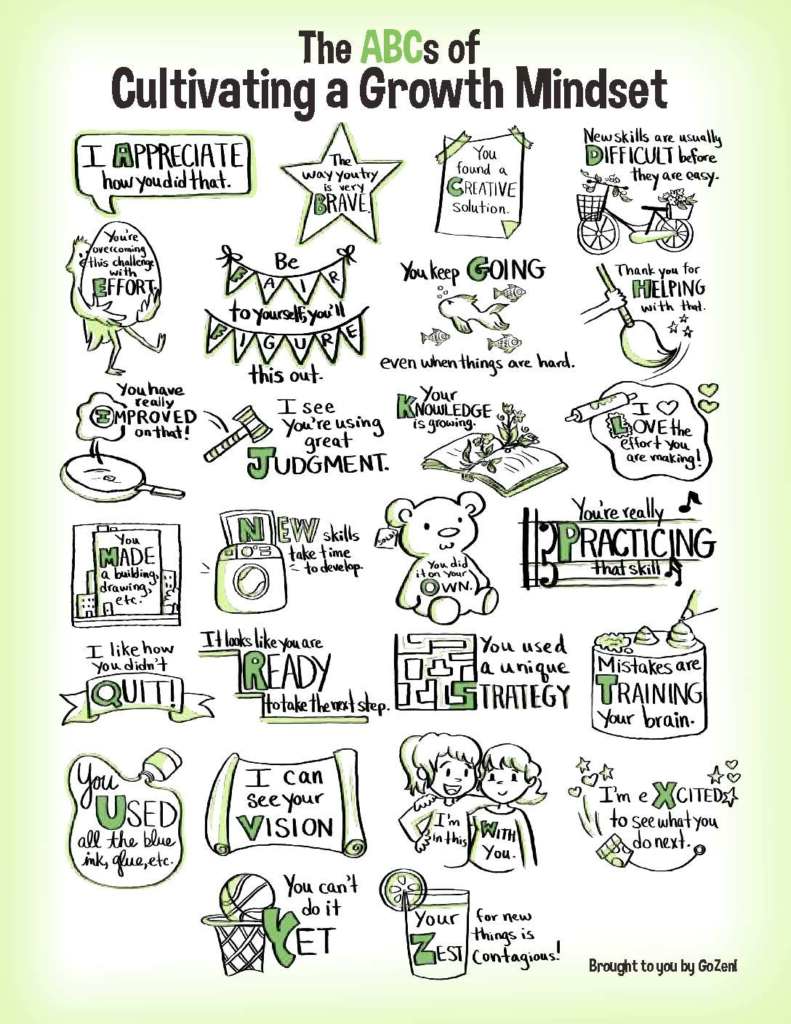 The ABCs of
Cultivating a Growth Mindset
I APPRECIATE
how you did that.
The
way you try
is very
BRAVE.
You
found a
CREATIVE
solution.
New skills are usually
DIFFICULT before
they are easy.
You're
overcoming
this challenge
with
EFFORT.
Be
FAIR
to yourself, you'll
FIGURE
this out.
You keep GOING
even when things are hard.
Thank you for
HELPING
with that.
You have
really
IMPROVED
on that!
I see
You're using
great
JUDGMENT.
Your
KNOWLEDGE
is growing.
I
LOVE the
effort you
are making!
You
MADE
a building,
drawing,
etc.
NEW skills
take time
to develop.
You did
it on your
OWN.
You're really
PRACTICING
that skill
I like how
you didn't
QUIT!
It looks like you are
READY
to take the next step.
You used
a unique
STRATEGY
Mistakes are
TRAINING
your brain.
You
USED
all the blue
ink, glue, etc.
I can
see your
VISION
I'm
in this
WITH
You.
I'm eXCITED
to see what you
do next.
You can't
do it
YET
Your
ZEST
for new
things is
contagious!
Brought to you by GoZen!